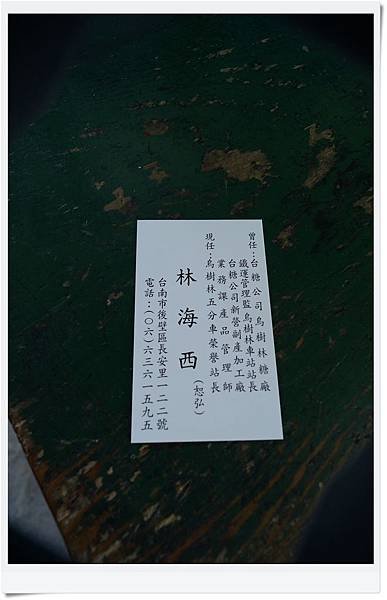 曾任：台糖公司烏樹林糖廠
鐵運管理監烏樹林車站站長
台糖公司新營副產加工廠
業務課產品管理師
現任：烏樹林五分車榮譽站長
林海西(恕弘)
台南市後壁區長安里一二二號
電話：(〇六)六三六一五九五